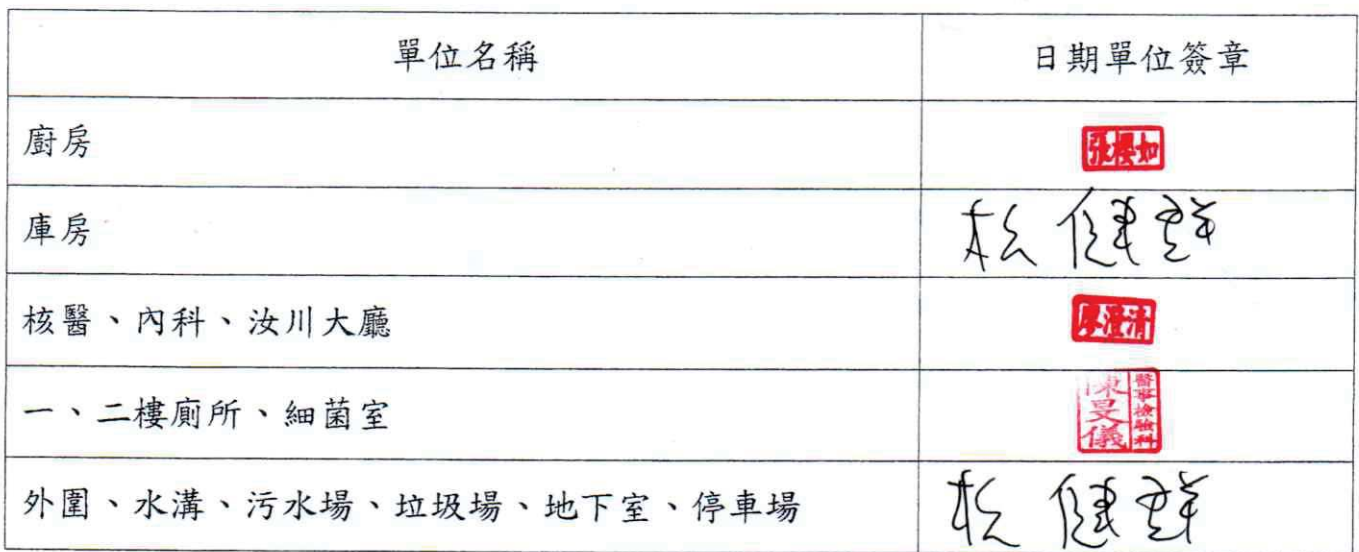 單位名稱 日期單位簽章
廚房 張櫻如
庫房 松健群
核醫、內科、汝川大廳 廖澄清
一、二樓廁所、細菌室 陳旻儀 醫事檢驗科
外圍、水溝、污水場、垃圾場、地下室、停車場 松健群